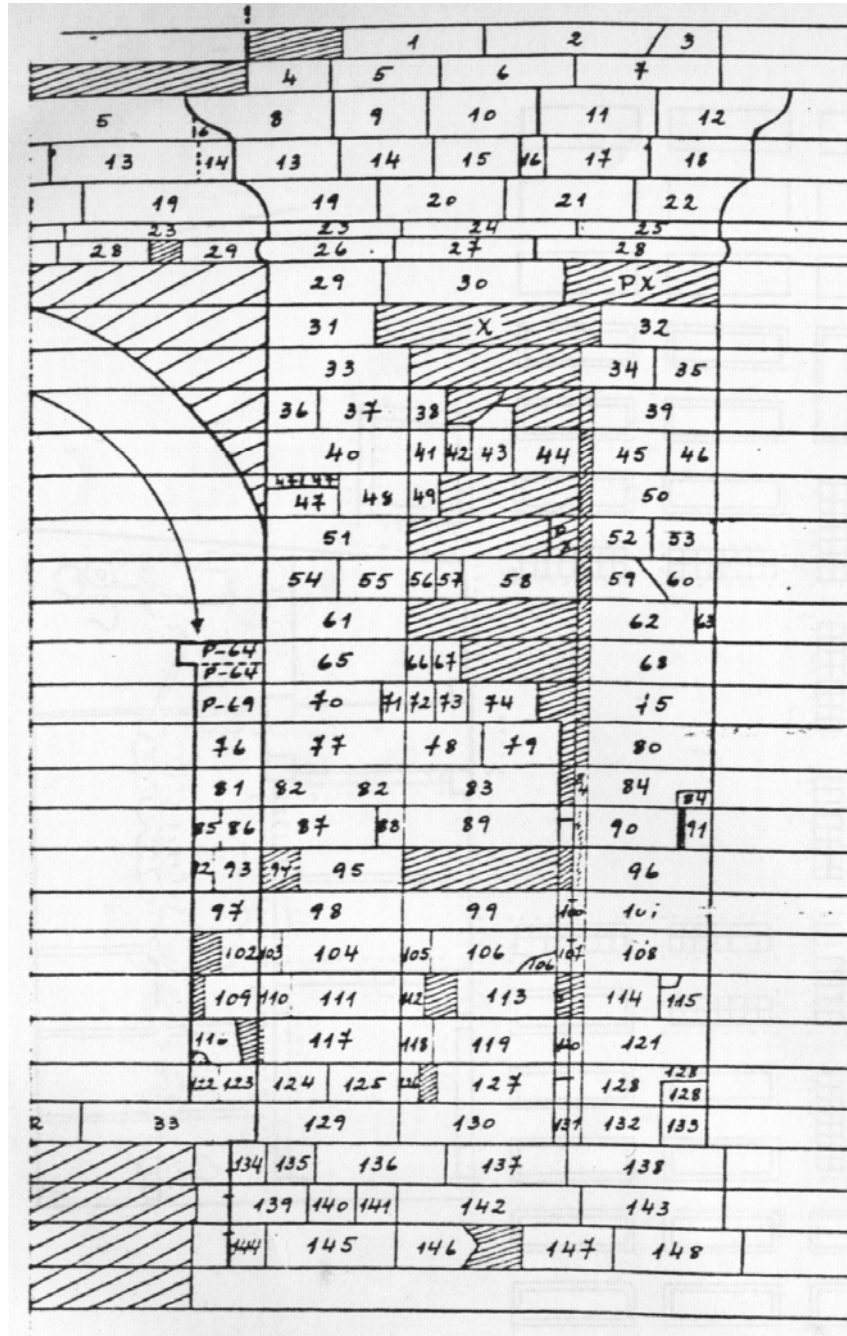 1 2 3
4 5 6 7
5 6 8 9 10 11 12
13 14 13 14 15 16 17 18
19 19 20 21 22
23 23 24 25
28 29 26 27 28
29 30 PX
31 X 32
33 34 35
36 37 38 39
40 41 42 43 44 45 46
47 47
47 48 49 50
51 52 53
54 55 56 57 58 59 60
61 62 63
P-64 65 66 67 68
P-64
P-69 70 71 72 73 74 75
76 77 78 79 80
81 82 82 83 84
84
85 86 87 88 89 90 91
93 94 95 96
97 98 99 100 101
102 103 104 105 106 107 108
106
109 110 111 112 113 114 115
116 117 118 119 120 121
122 123 124 125 126 127 128 128
128
33 129 130 131 132 133
134 135 136 137 138
139 140 141 142 143
144 145 146 147 148